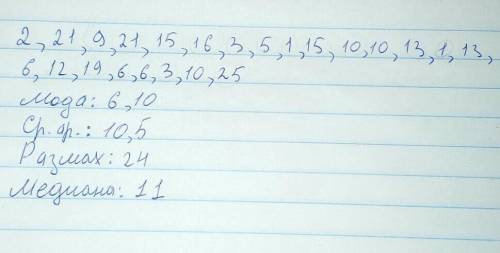 2, 21, 9, 21, 15, 16, 3, 5, 1, 15, 10, 10, 13, 1, 13,
6, 12, 19, 6, 6, 3, 10, 25
Мода: 6, 10
Ср. ар.: 10,5
Размах: 24
Медиана: 11